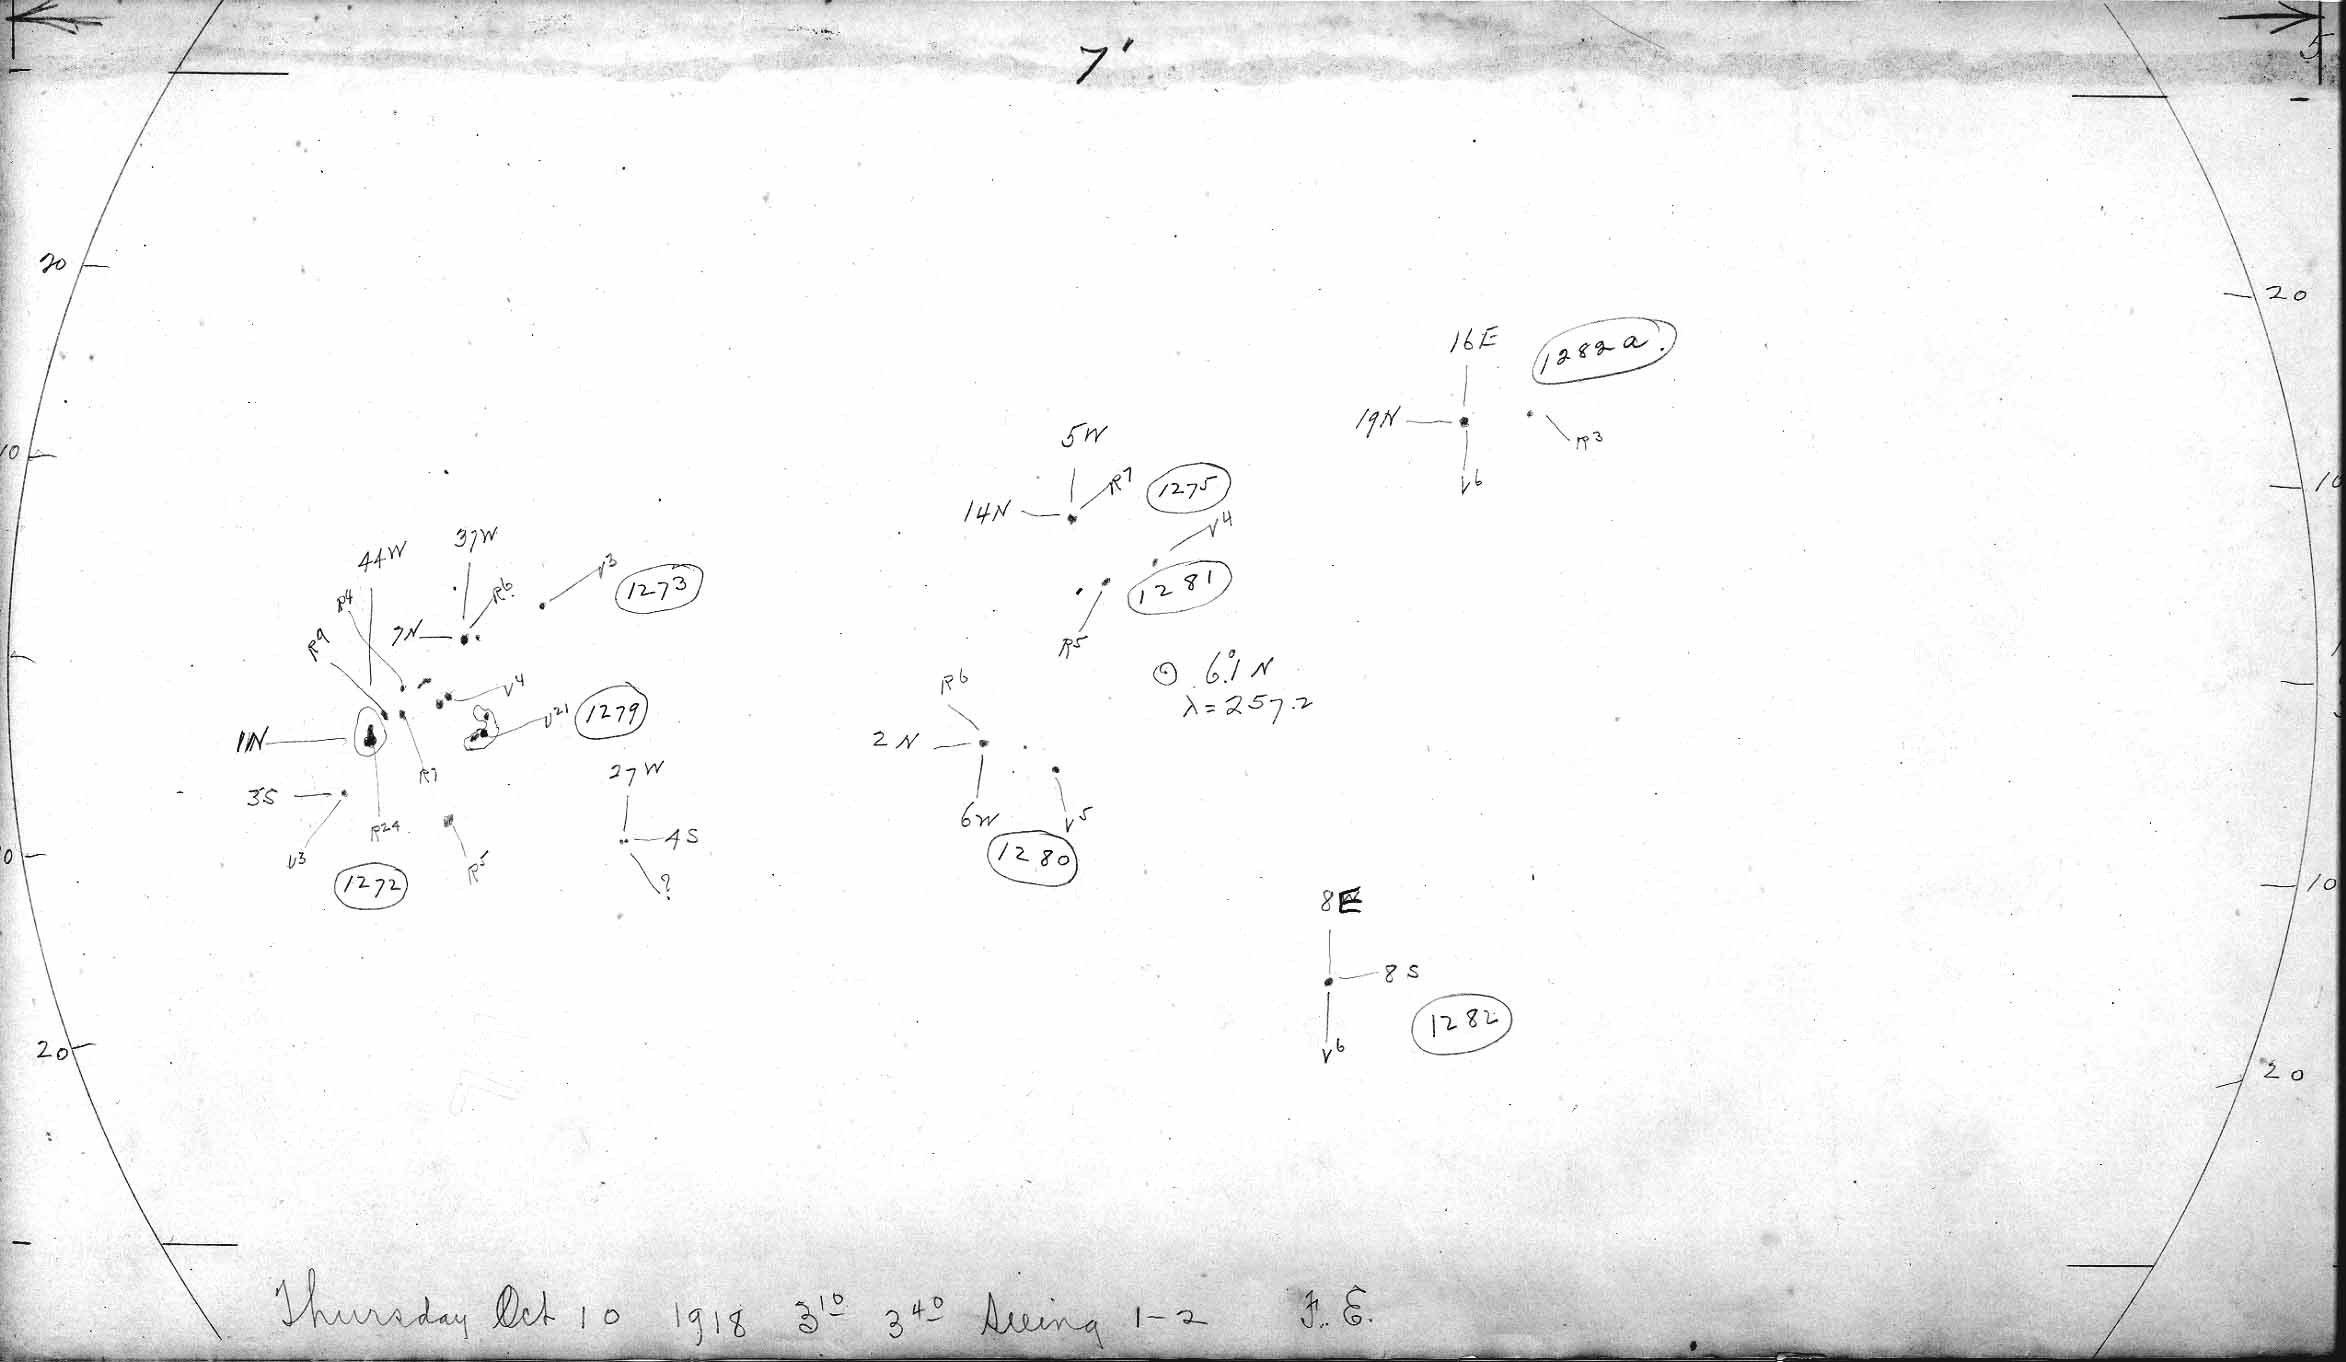 7'
5
20
20
16E
1282a.
19N
R3
V6
10
10
5W
R7
1275
14N
V4
37W
44W
V3
R6
1273
R4
1281
7N
R9
R5
⊙ 6.°1 N
λ = 257.2
R6
V4
V21
1279
1N
2N
R7
27W
3S
R24
6W
V5
4S
V3
R5
1280
?
1272
10
8E
8S
1282
V6
20
20
Thursday Oct 10 1918 3 10 3 40 Seeing 1-2 F. E.